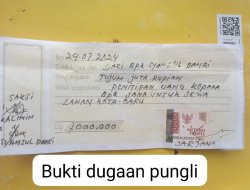 No: 29-07-2024
DARI BPK SYAMSUL BAHRI
TUJUH JUTA RUPIAH
PENITIPAN UANG KEPADA
BPK SANA UNTUK SEWA
LAHAN KOTA-BAKU
SAKSI
KALIMIN
SYAMSUL
Rp. 7.000.000
SARJANA
Bukti dugaan pungli